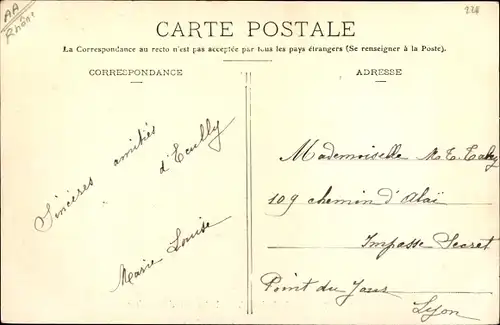 AA
Rhône
224
CARTE POSTALE
La Correspondance au recto n'est pas acceptée par tous les pays étrangers (Se renseigner à la Poste).
CORRESPONDANCE
Sincères amitiés
d'Ecully
Marie Louise
ADRESSE
Mademoiselle M. T.
109 chemin d'Alaï
Impasse Secret
Point du Jour
Lyon